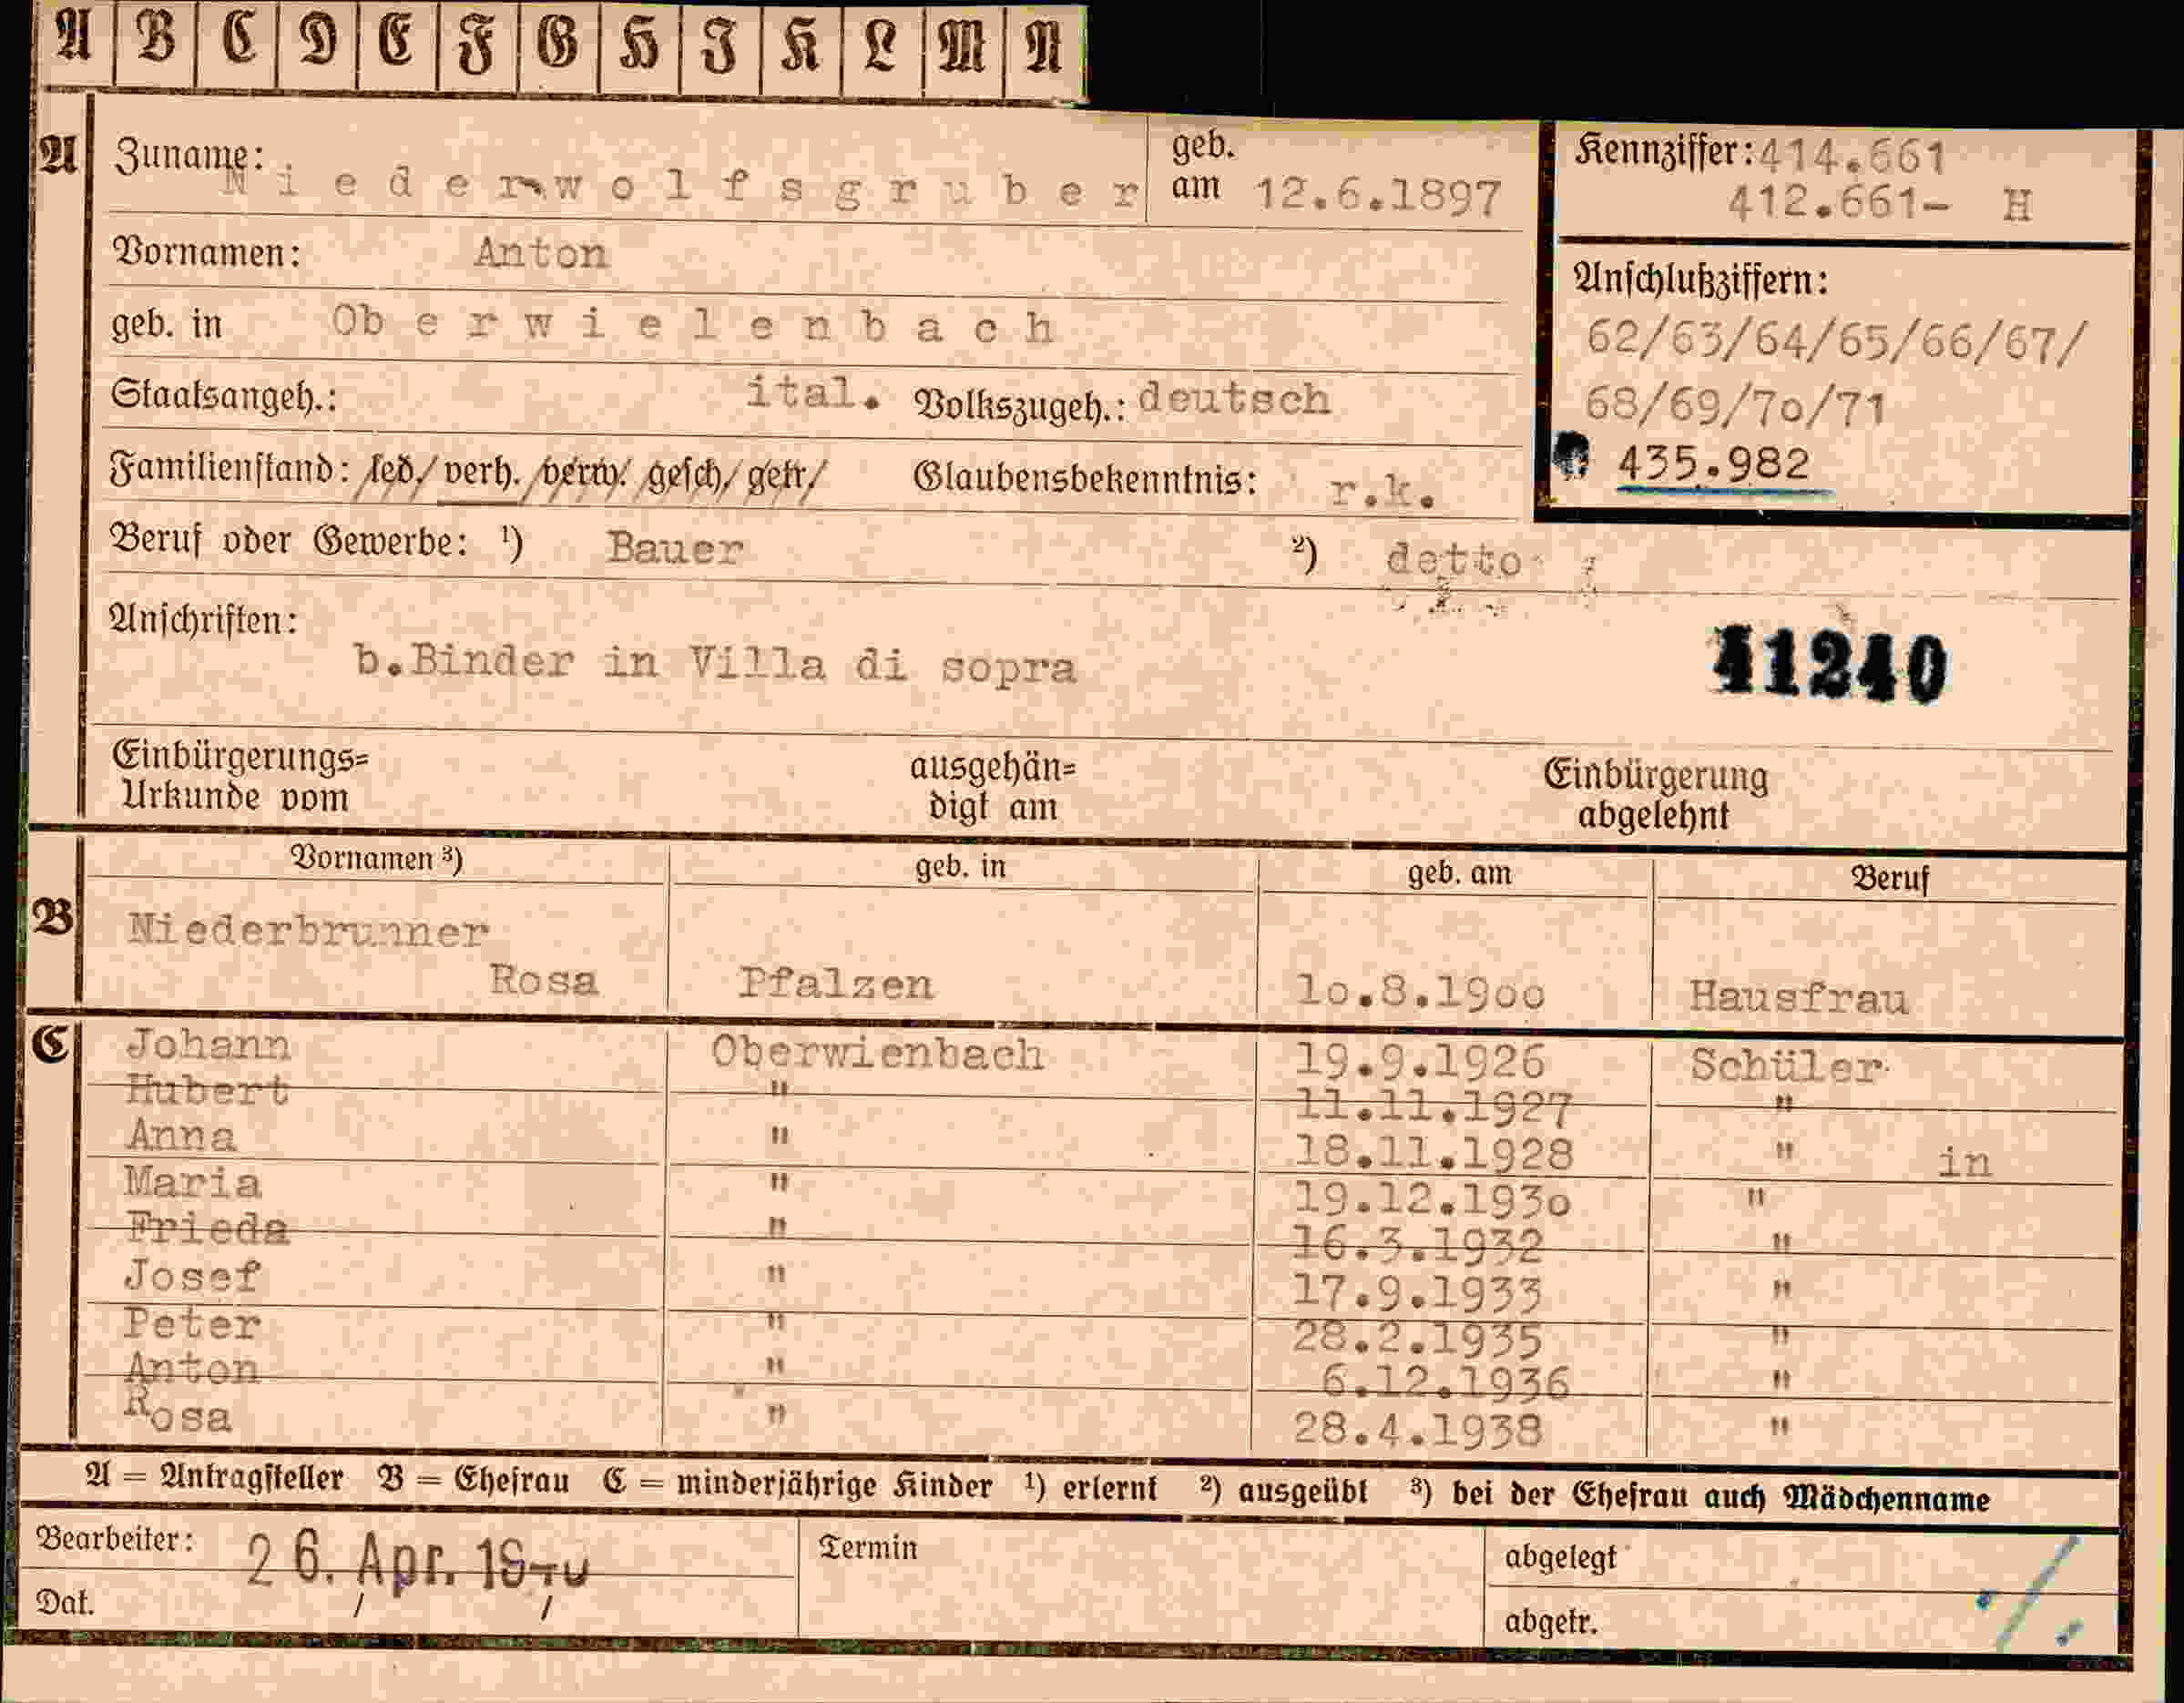 A B C D E F G H J K L M N
A Zuname: Niederwolfsgruber geb. am 12.6.1897
Kennziffer: 414.661
412.661- H
Vornamen: Anton
geb. in Oberwielenbach
Anschlußziffern:
62/63/64/65/66/67/
68/69/70/71
435.982
Staatsangeh.: ital. Volkszugeh.: deutsch
Familienstand: led./ verh. /verw./ gesch/ getr/ Glaubensbekenntnis: r.k.
Beruf oder Gewerbe: ¹) Bauer ²) detto
Anschriften:
b.Binder in Villa di sopra
41240
Einbürgerungs=
Urkunde vom
ausgehän=
digt am
Einbürgerung
abgelehnt
Vornamen ³) geb. in geb. am Beruf
B Niederbrunner
Rosa Pfalzen 1o.8.19oo Hausfrau
C Johann Oberwienbach 19.9.1926 Schüler
Hubert " 11.11.1927 "
Anna " 18.11.1928 " in
Maria " 19.12.193o "
Frieda " 16.3.1932 "
Josef " 17.9.1933 "
Peter " 28.2.1935 "
Anton " 6.12.1936 "
Rosa " 28.4.1938 "
A = Antragsteller B = Ehefrau C = minderjährige Kinder ¹) erlernt ²) ausgeübt ³) bei der Ehefrau auch Mädchenname
Bearbeiter: 26. Apr.
Dat.
Termin
abgelegt
abgetr.